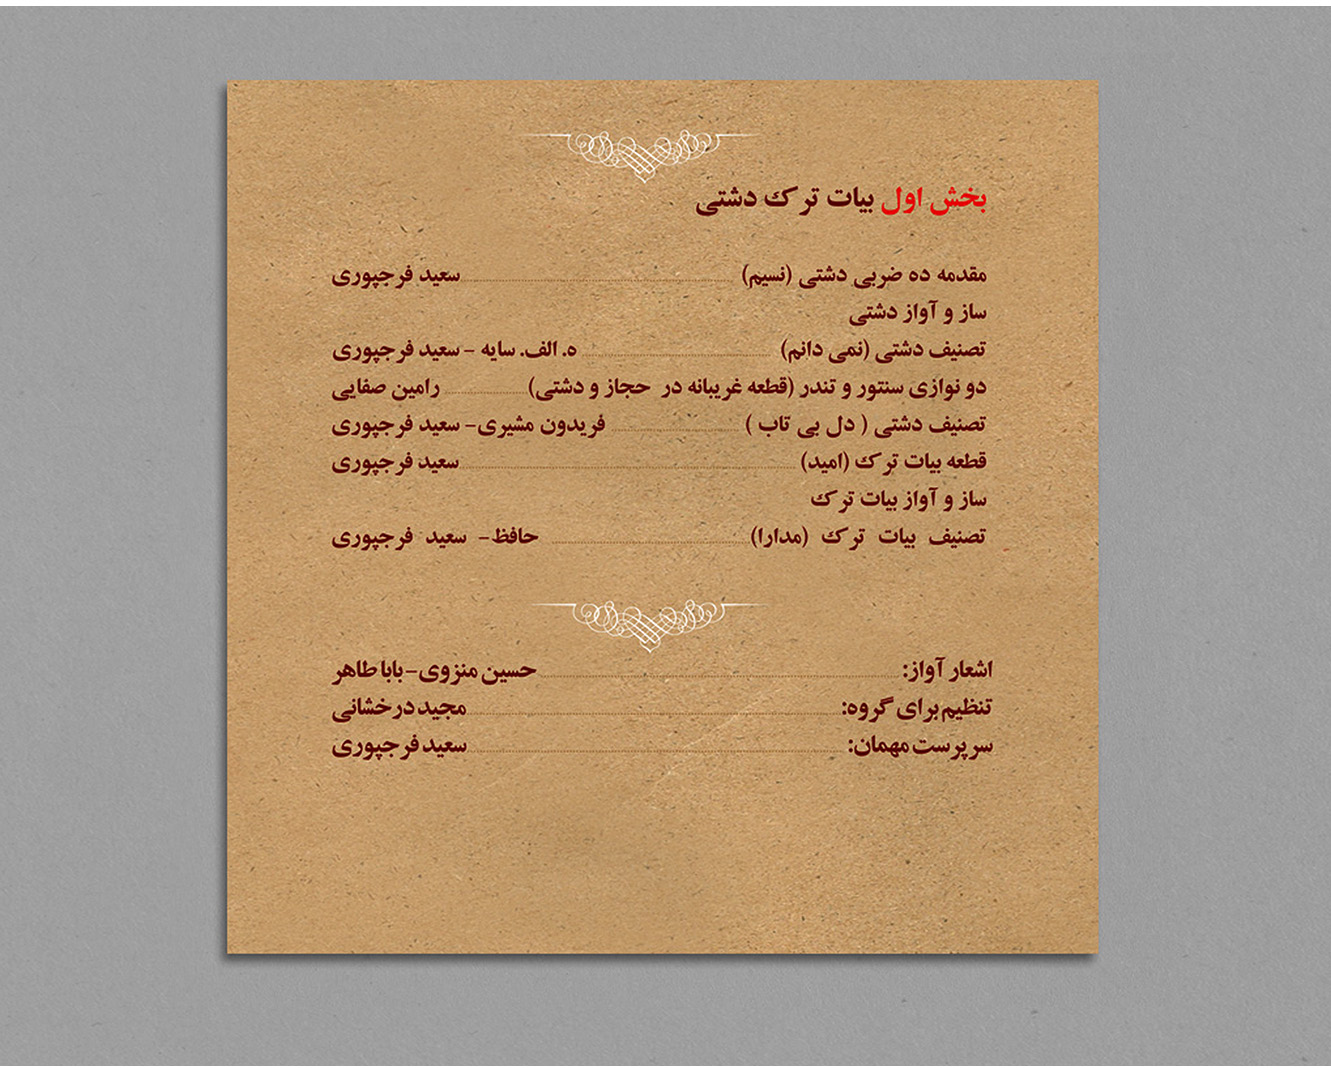 بخش اول بیات ترک دشتی
مقدمه ده ضربی دشتی (نسیم) سعید فرجپوری
ساز و آواز دشتی
تصنیف دشتی (نمی دانم) ه. الف. سایه - سعید فرجپوری
دو نوازی سنتور و تندر (قطعه غریبانه در حجاز و دشتی) رامین صفایی
تصنیف دشتی ( دل بی تاب ) فریدون مشیری- سعید فرجپوری
قطعه بیات ترک (امید) سعید فرجپوری
ساز و آواز بیات ترک
تصنیف بیات ترک (مدارا) حافظ- سعید فرجپوری
اشعار آواز: حسین منزوی-باباطاهر
تنظیم برای گروه: مجید درخشانی
سرپرست مهمان: سعید فرجپوری